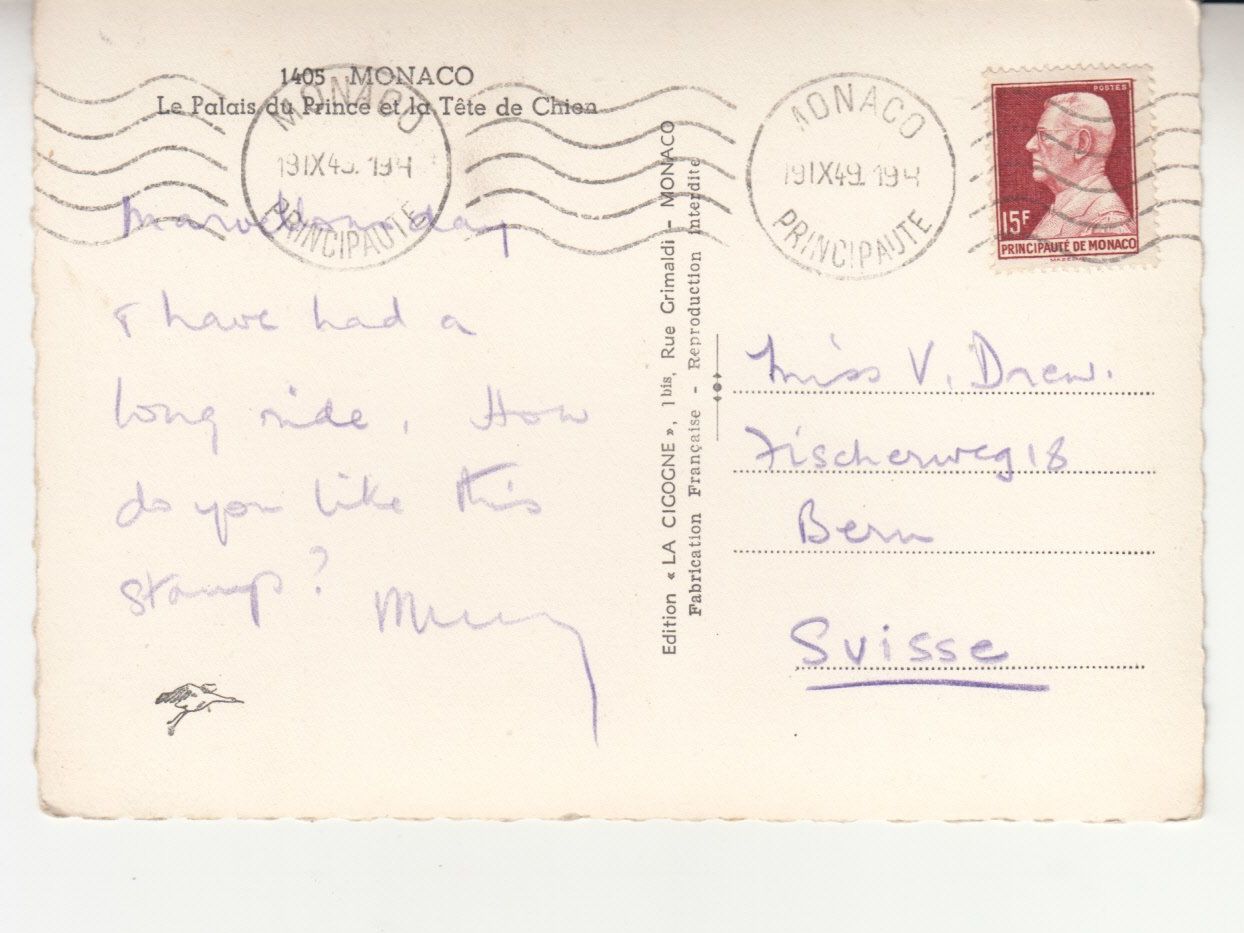 1405 MONACO
Le Palais du Prince et la Tête de Chien
MONACO
19 IX 49. 19H
PRINCIPAUTE
MONACO
19 IX 49. 19H
PRINCIPAUTE
POSTES
15F
PRINCIPAUTÉ DE MONACO
day
I have had a
long ride. How
do you like this
stamp?
Edition « LA CIGOGNE », 1 bis, Rue Grimaldi - MONACO
Fabrication Française - Reproduction interdite
Miss V. Drew.
Fischerweg 18
Bern
Suisse